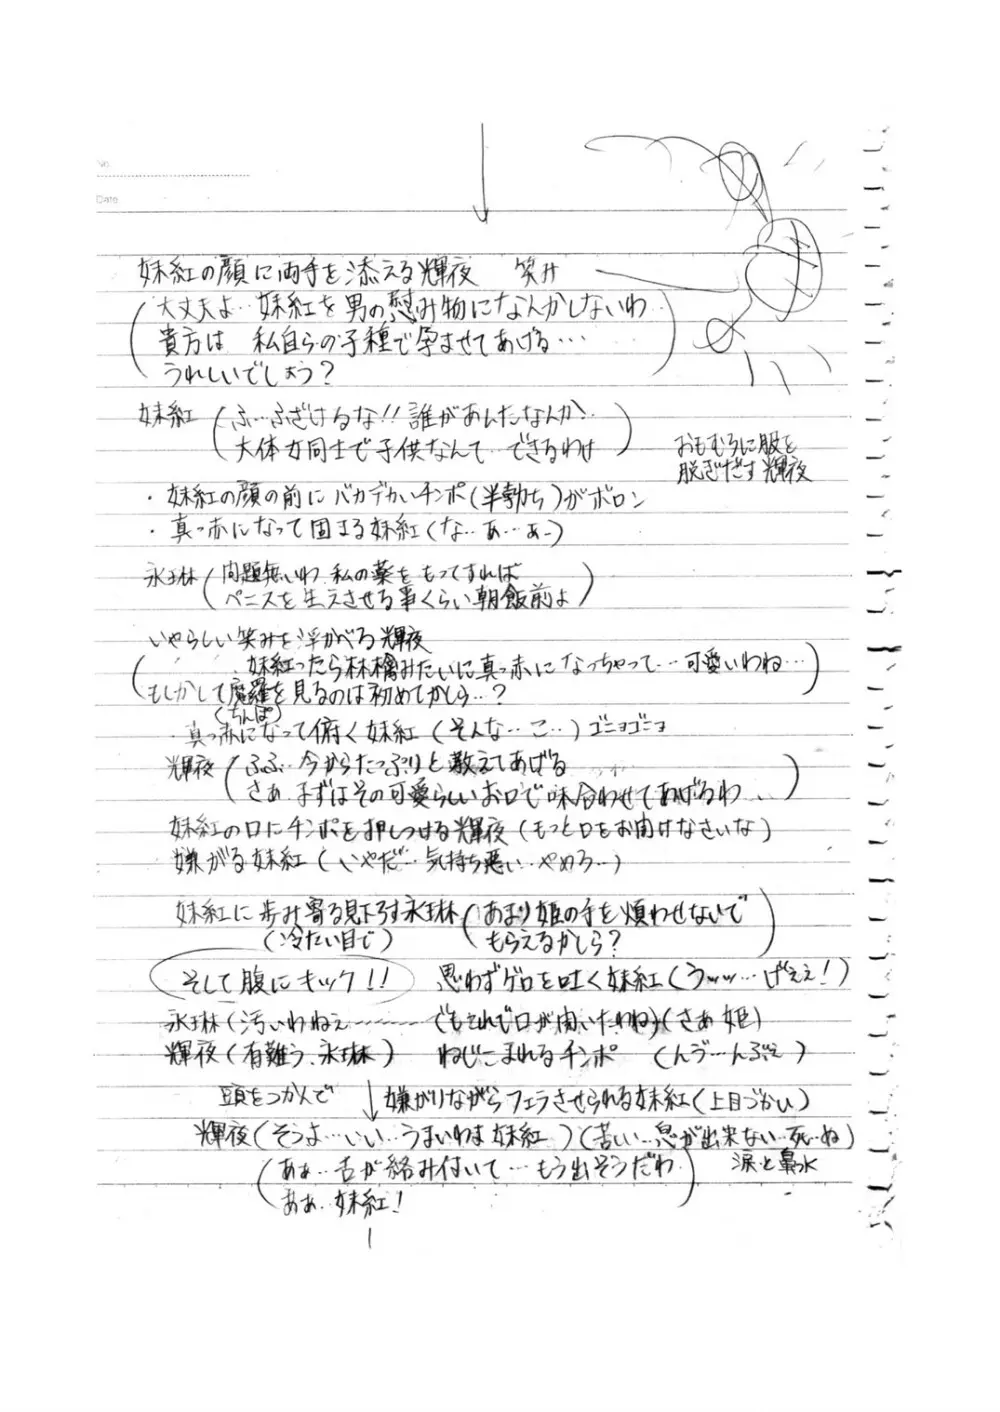 No.
Date
妹紅の顔に両手を添える輝夜 笑み
(大丈夫よ‥妹紅を男の慰み物になんかしないわ‥
貴方は 私自らの子種で孕ませてあげる…
うれしいでしょう?)
妹紅(ふ…ふざけるな!!誰があんたなんか‥
大体女同士で子供なんて‥できるわけ)
おもむろに服を
脱ぎだす輝夜
・妹紅の顔の前にバカデカいチンポ(半勃ち)がボロン
・真っ赤になって固まる妹紅(な‥あ…あ-)
永琳(問題無いわ 私の薬をもってすれば
ペニスを生えさせる事くらい朝飯前よ)
いやらしい笑みを浮かべる輝夜
(妹紅ったら林檎みたいに真っ赤になっちゃって…可愛いわね…
もしかして魔羅を見るのは初めてかしら…?)
(ちんぽ)
・真っ赤になって俯く妹紅(そんな…こ‥)ゴニョゴニョ
輝夜(ふふ‥今からたっぷりと教えてあげる
さあ まずはその可愛らしいお口で味合わせてあげるわ‥)
妹紅の口にチンポを押しつける輝夜(もっと口をお開けなさいな)
嫌がる妹紅(いやだ…気持ち悪い‥やめろ…)
妹紅に歩み寄る見下ろす永琳(あまり姫の手を煩わせないで
(冷たい目で) もらえるかしら?)
そして腹にキック!! 思わずゲロを吐く妹紅(うッッ…げぇぇ!)
永琳(汚いわねぇ……でもそれで口が開いたわね)(さあ 姫)
輝夜(有難う、永琳) ねじこまれるチンポ (んう゛…んぶぇ)
頭をつかんで ↓嫌がりながらフェラさせられる妹紅(上目づかい)
輝夜(そうよ…いい…うまいわよ 妹紅)(苦しい…息が出来ない…死…ぬ)
(あぁ…舌が絡み付いて…もう出そうだわ 涙と鼻水
ああ‥妹紅!)